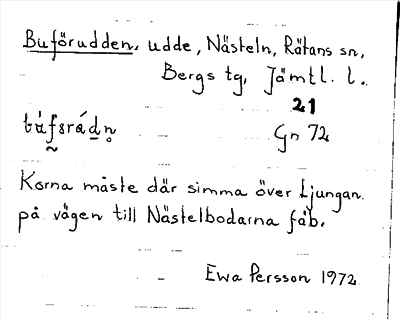 Buförudden, udde, Nästeln, Rätans sn,
Bergs tg, Jämtl. l.
21
Gn 72
Korna måste där simma över Ljungan
på vägen till Nästelbodarna fäb.
Ewa Persson 1972